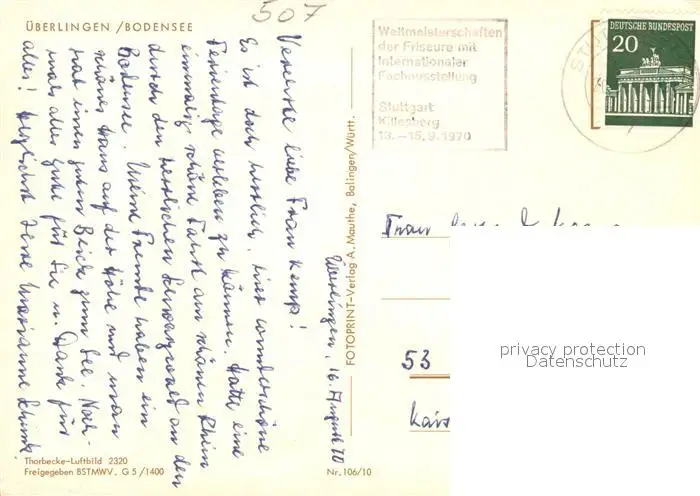 507
ÜBERLINGEN / BODENSEE
Überlingen, 16. August 70
Verehrte liebe Frau Kemp!
Es ist doch herrlich, einen wunderschöne
Ferientage verleben zu können. Hatte eine
einmalig schöne Fahrt am schönen Rhein
durch den herrlichen Schwarzwald an den
Bodensee. Meine Freunde haben ein
schönes Haus auf der Höhe und man
hat einen guten Blick zum See. Noch-
mals alles Gute für Sie u. Dank für
alles! Herzlichst Ihre Marianne
Thorbecke-Luftbild 2320
Freigegeben BSTMWV. G 5/1400
Nr. 106/10
FOTOPRINT-Verlag A. Mauthe, Balingen/Württ.
Weltmeisterschaften
der Friseure mit
Internationaler
Fachausstellung
Stuttgart
Killesberg
13.-15.9.1970
DEUTSCHE BUNDESPOST
20
Frau
53
privacy protection
Datenschutz